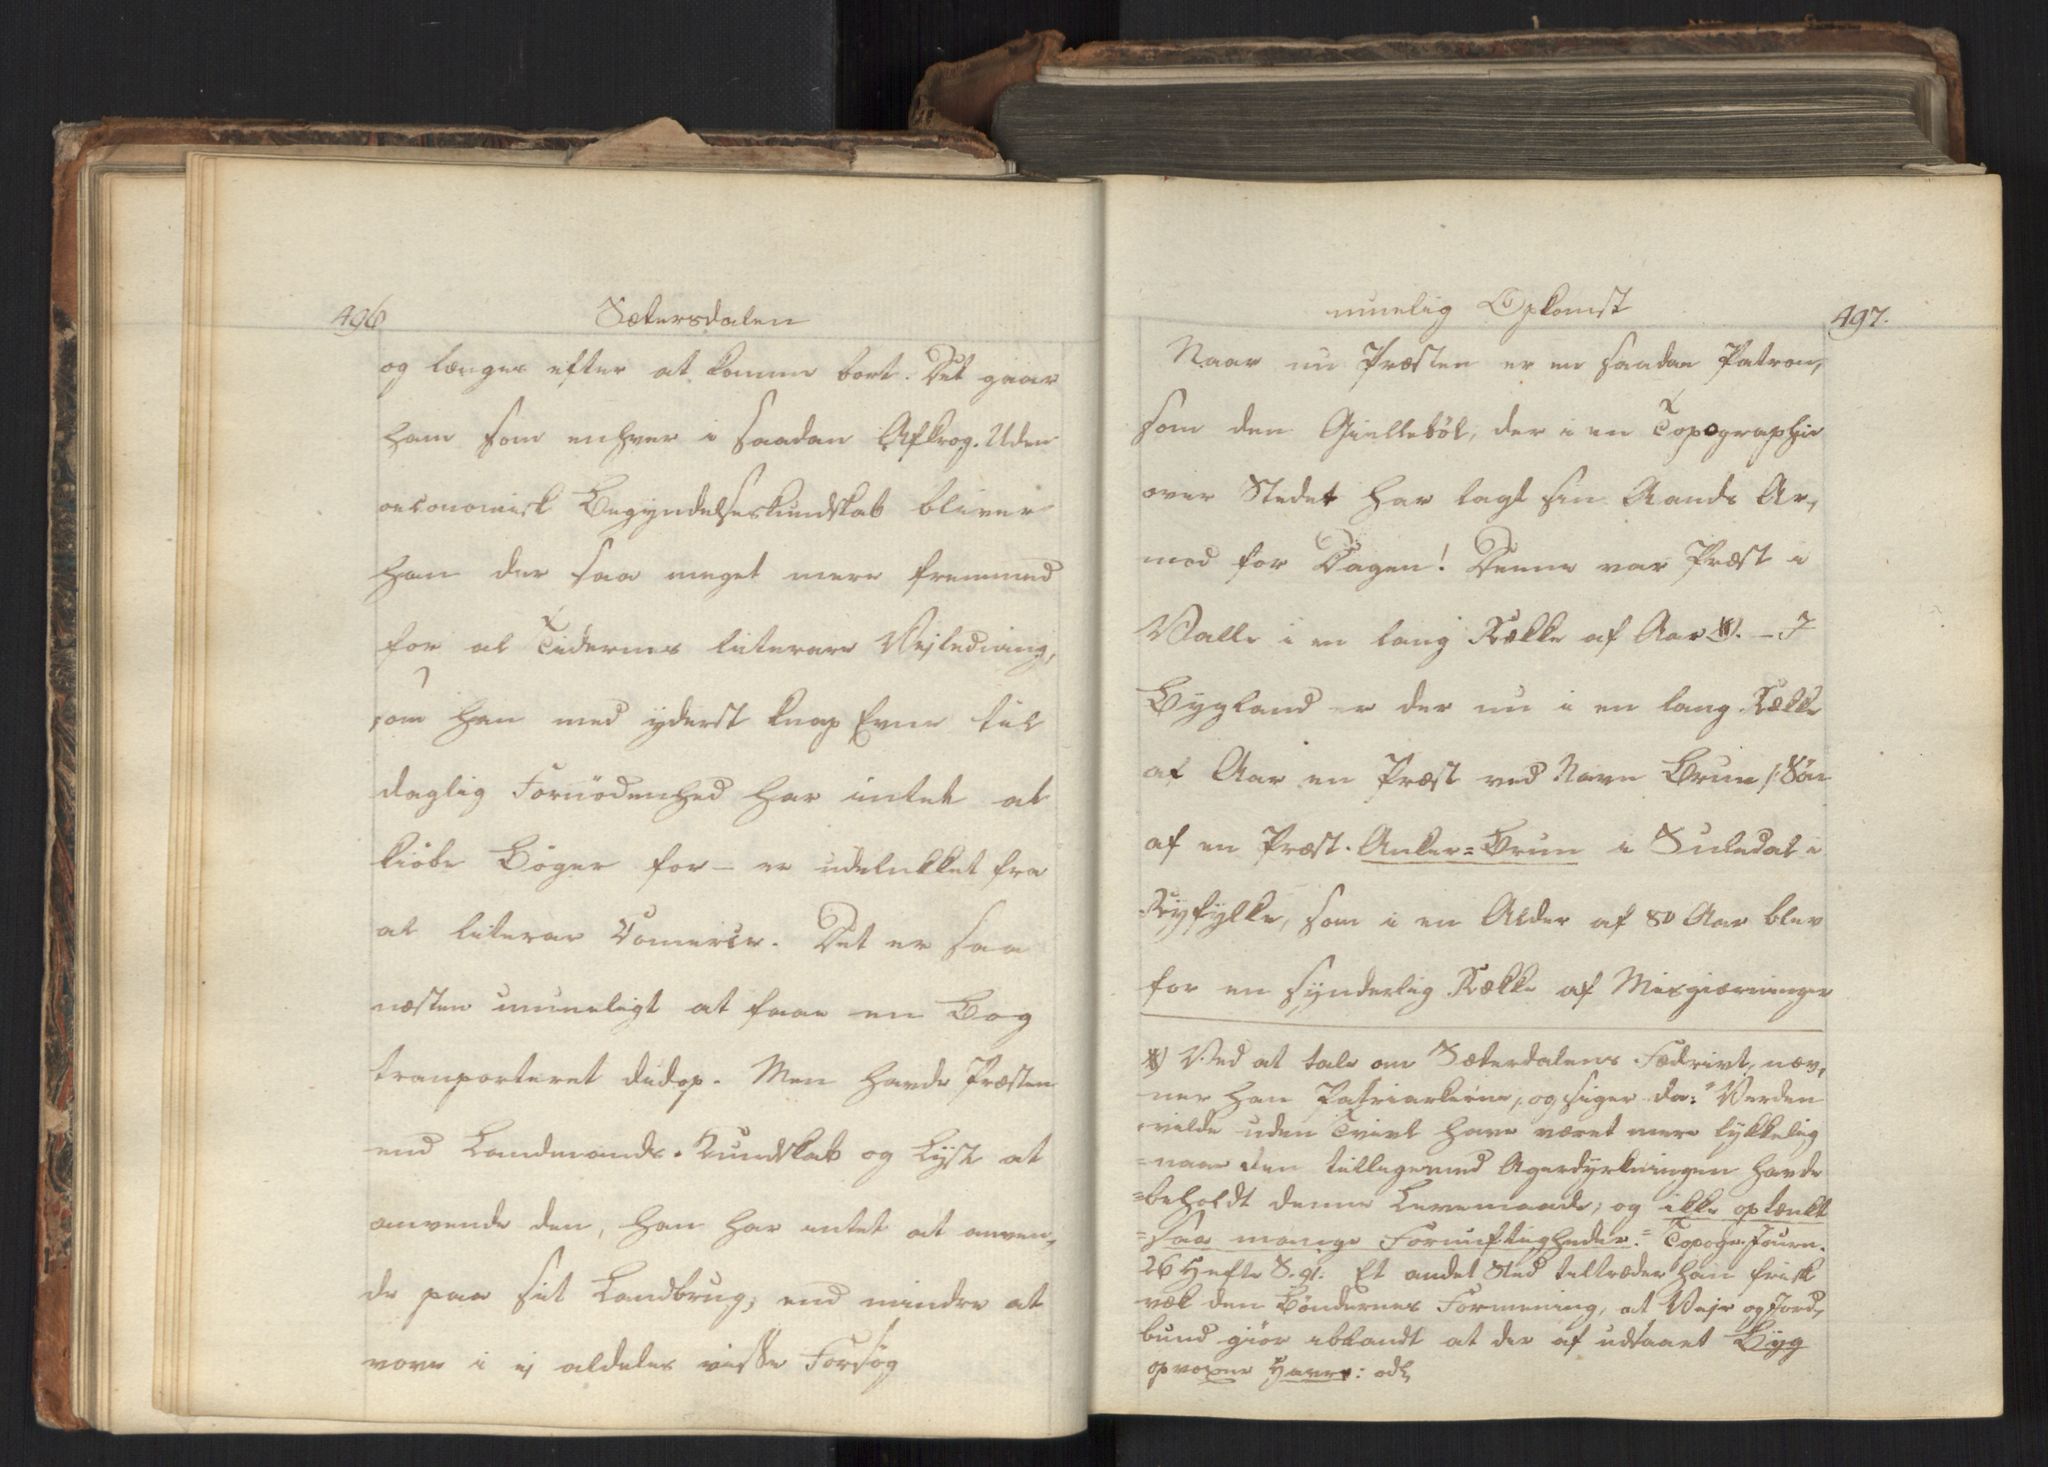 496
Sætersdalen
og længes efter at komme bort. Det gaar
ham som enhver i saadan Afkrog. Uden
oeconomisk Begyndelseskundskab bliver
han der saa meget mere fremmed
for al Tidernes literare Vejledning,
som han med yderst knap Evne til
daglig Fornödenhed har intet at
kiöbe Böger for – er udelukket fra
al literar Comerce. Det er saa
næsten umueligt at faae en Bog
tranporteret didop. Men havde Præsten
end Landmands-Kundskab og Lyst at
anvende den, han har intet at anven,
de paa sit Landbrug, end mindre at
vove i ej aldeles visse Forsög
muelig Opkomst
497.
Naar nu Præsten er en saadan Patron,
som den Gielleböl, der i en Topographie
over Stedet har lagt sin Aands Ar,
mod for Dagen! Denne var Præst i
Valle i en lang Række af Aar ⁕). – I
Bygland er der nu i en lang Række
af Aar en Præst ved Navn Brun /: Sön
af en Præst. Anker-Brun i Suledal i
Ryfylke, som i en Alder af 80 Aar blev
for en synderlig Række af Misgierninger
⁕) Ved at tale om Sæterdalens Fædrivt, næv,
ner han Patriarkerne, og siger da: "Verden
vilde uden Tvivl have været mere lykkelig
=naar den tilligemed Agerdyrkningen havde
=beholdt denne Levemaade, og ikke optænkt
=saa mange Fornuftigheder.= Topogr. Journ.
26 Hefte S. 91. Et andet Sted tiltræder han frisk
væk den Böndernes Formening, at Vejr og Jord,
bund giör iblandt at der af udsaaet Byg
opvoxne Havre: odl,